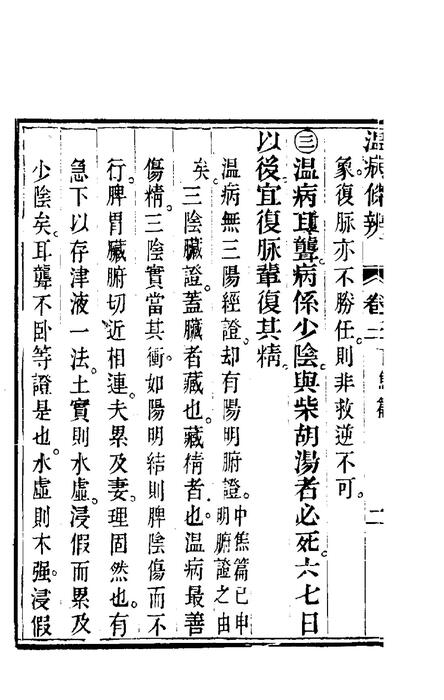 溫病條辨 卷三下焦篇 二
象復脉亦不勝任則非救逆不可。
㊂溫病耳聾病係少陰與柴胡湯者必死六七日
以後宜復脉輩復其精。
溫病無三陽經證。却有陽明腑證。中焦篇已申明腑證之由
矣。三陰臟證。蓋臟者藏也。藏精者也。溫病最善
傷精。三陰實當其衝。如陽明結則脾陰傷而不
行。脾胃臟腑切近相連。夫累及妻。理固然也。有
急下以存津液一法。土實則水虛。浸假而累及
少陰矣。耳聾不卧等證是也。水虛則木强。浸假